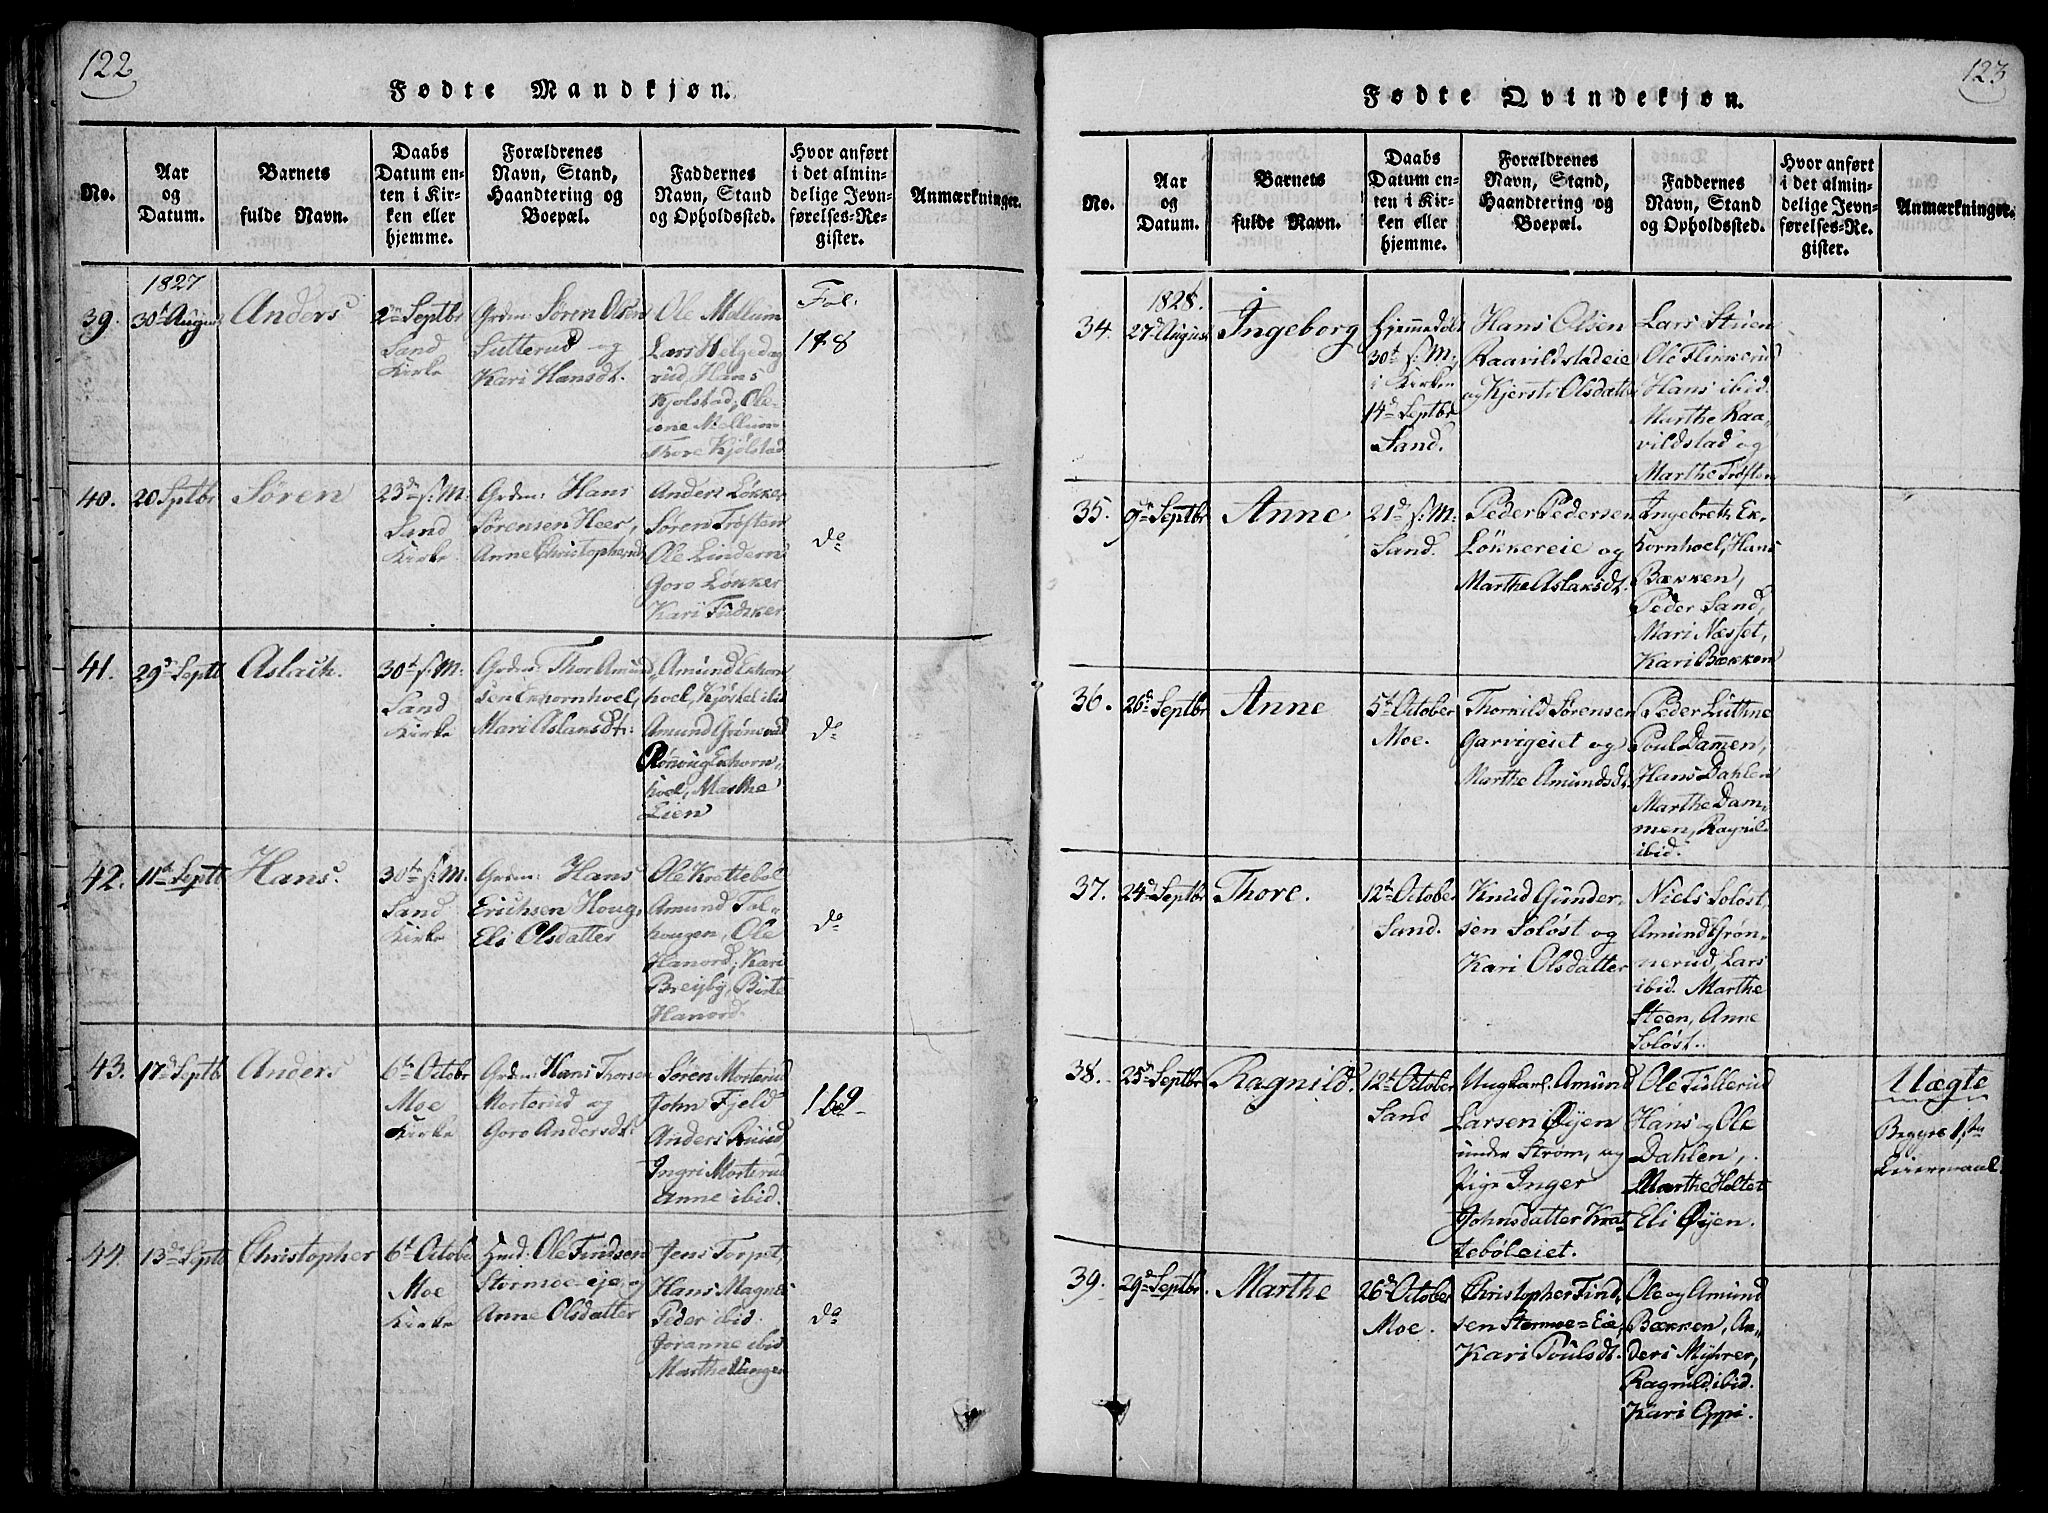 122
Fødte Mandkjøn.
No.
Aar
og
Datum.
Barnets
fulde Navn.
Daabs
Datum en-
ten i Kir-
ken eller
hjemme.
Forældrenes
Navn, Stand,
Haandtering og
Boepæl.
Faddernes
Navn, Stand
og Opholdssted.
Hvor anført
i det almin-
delige Jevn-
førelses-Re-
gister.
Anmærkninger.
1827
39.
30t August
Anders
2den Septbr
Sand
Kirke
Grdm: Søren Olsen
Sutterud og
Kari Hansdt.
Ole Mellum
Lars Helged
rud, Hans
Kjølstad, Ole
Mellum
Thore Kjølstad
Fol:
148
40.
20 Sptbr
Søren
23de s:M:
Sand
Kirke
Grdm: Hans
Sørensen Heer,
Anne Christophersd
Anders Løkker
Søren Trøften
Ole Lindernd
Goro Løkker
Kari Fudsker
do
41.
29d Septb
Aslack.
30t s:M:
Sand
Kirke
Grdm: Thor Amund,
sen Ekornhoel,
Mari Aslaksdt:
Amund Ekorn
hoel, Kjøstel ibid
Amund Grønerud
Rønnoug Ekhorn,
hoel, Marthe
Lien
do
42.
11t Septb
Hans.
30t s:M.
Sand
Kirke
Grdm: Hans
Erichsen Houg,
Eli Olsdatter
Ole Krattebøl
Amund Tol-
hougen, Ole
Hanord, Kari
Breyby, Birte
Hanord.
do
43.
17d Septbr
Anders
6te Octobr
Moe
Kirke
Grdm: Hans Thorsen
Morterud og
Goro Andersdt:
Søren Morterud
John Fjeld
Anders Ruud
Ingri Morterud
Anne ibid.
169
44.
13de Septb
Christopher
6t October
Moe
Kirke
Husd: Ole Findsen
Stormoe-eje, og
Anne Olsdatter
Jens Torpet,
Hans Magnes
Peder ibid.
Joranne ibid
Marthe Unger
do
123
Fødte Qvindekjøn.
No.
Aar
og
Datum.
Barnets
fulde Navn.
Daabs
Datum en-
ten i Kir-
ken eller
hjemme.
Forældrenes
Navn, Stand,
Haandtering og
Boepæl.
Faddernes
Navn, Stand
og Opholdssted.
Hvor anført
i det almin-
delige Jevn-
førelses-Re-
gister.
Anmærkninger.
1828.
34.
27d August
Ingeborg
Hjemmedøbt
30t s:M:
i Kirken
14d Septbr
Sand.
Hans Olsen
Raavildstadeie
og Kjersti Olsdatter
Lars Stuen
Ole Flikkerud
Hans ibid.
Marthe Raa-
vildstad og
Marthe Trøften
35.
9d Septbr
Anne
21d s:M:
Sand.
Peder Pedersen
Løkkereie og
Marthe Aslaksdt.
Ingebreth Ek-
kornhoel, Hans
Bækken,
Peder Sand,
Mari Næsset,
Kari Bækken
36.
26d Septbr
Anne
5t October
Moe.
Thorkild Sørensen
Garvigeiet og
Marthe Amundsdt.
Peder Luthne
Poul Dammen,
Hans Dahlen
Marthe Dam-
men, Ragnild
ibid.
37.
24d Septbr
Thore.
12t October
Sand.
Knud Gunder,
sen Soløst og
Kari Olsdatter
Niels Soløst,
Amund Grøn-
nerud, Lars
ibid. Marthe
Steen, Anne
Soløst.
38.
25d Septbr
Ragnild.
12t October
Sand
Ungkarl Amund
Larsen Øyen
under Strøm, og
Pige Inger
Johnsdatter Krat
tebøleiet.
Ole Tullerud
Hans og Ole
Dahlen,
Marthe Holtet
Eli Øyen.
Uægte
Begges 1ste
Leiermaal.
39.
29d Septbr.
Marthe
26d October
Moe.
Christopher Find,
sen Stormoe=Eie,
Kari Poulsdt.
Ole og Amund
Bækken, An-
ders Myhrer,
Ragnild ibid.
Kari Oppi.